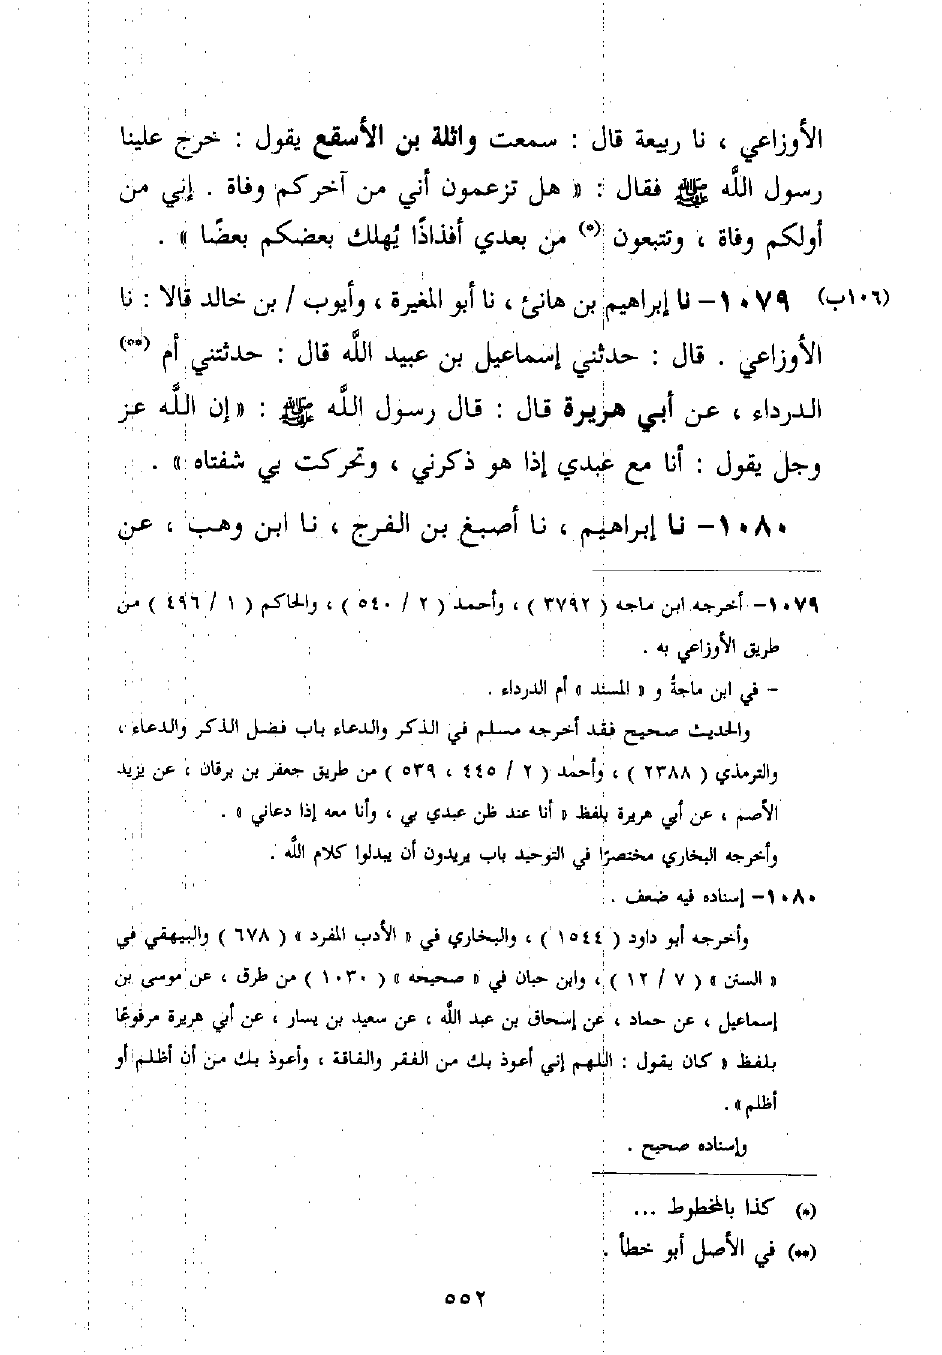 الأوزاعي ، نا ربيعة قال : سمعت واثلة بن الأسقع يقول : خرج علينا
رسول الله ﷺ فقال : « هل تزعمون أني من آخركم وفاة . إني من
أولكم وفاة ، وتتبعون (*) من بعدي أفذاذًا يُهلك بعضكم بعضًا » .
(١٠٦ب) ١٠٧٩– نا إبراهيم بن هانئ ، نا أبو المغيرة ، وأيوب / بن خالد قالا : نا
الأوزاعي . قال : حدثني إسماعيل بن عبيد الله قال : حدثتني أم (**)
الدرداء ، عن أبي هريرة قال : قال رسول الله ﷺ : « إن الله عز
وجل يقول : أنا مع عبدي إذا هو ذكرني ، وتحركت بي شفتاه » .
١٠٨٠– نا إبراهيم ، نا أصبغ بن الفرج ، نا ابن وهب ، عن
١٠٧٩– أخرجه ابن ماجه ( ٣٧٩٢ ) ، وأحمد ( ٢ / ٥٤٠ ) ، والحاكم ( ١ / ٤٩٦ ) من
طريق الأوزاعي به .
– في ابن ماجةُ و « المسند » أم الدرداء .
والحديث صحيح فقد أخرجه مسلم في الذكر والدعاء باب فضل الذكر والدعاء ،
والترمذي ( ٢٣٨٨ ) ، وأحمد ( ٢ / ٤٤٥ ، ٥٣٩ ) من طريق جعفر بن برقان ، عن يزيد
الأصم ، عن أبي هريرة بلفظ « أنا عند ظن عبدي بي ، وأنا معه إذا دعاني » .
وأخرجه البخاري مختصرًا في التوحيد باب يريدون أن يبدلوا كلام الله .
١٠٨٠– إسناده فيه ضعف .
وأخرجه أبو داود ( ١٥٤٤ ) ، والبخاري في « الأدب المفرد » ( ٦٧٨ ) والبيهقي في
« السنن » ( ٧ / ١٢ ) ، وابن حبان في « صحيحه » ( ١٠٣٠ ) من طرق ، عن موسى بن
إسماعيل ، عن حماد ، عن إسحاق بن عبد الله ، عن سعيد بن يسار ، عن أبي هريرة مرفوعًا
بلفظ « كان يقول : اللهم إني أعوذ بك من الفقر والفاقة ، وأعوذ بك من أن أظلم أو
أظلم » .
وإسناده صحيح .
(*) كذا بالمخطوط ...
(**) في الأصل أبو خطأ .
٥٥٢